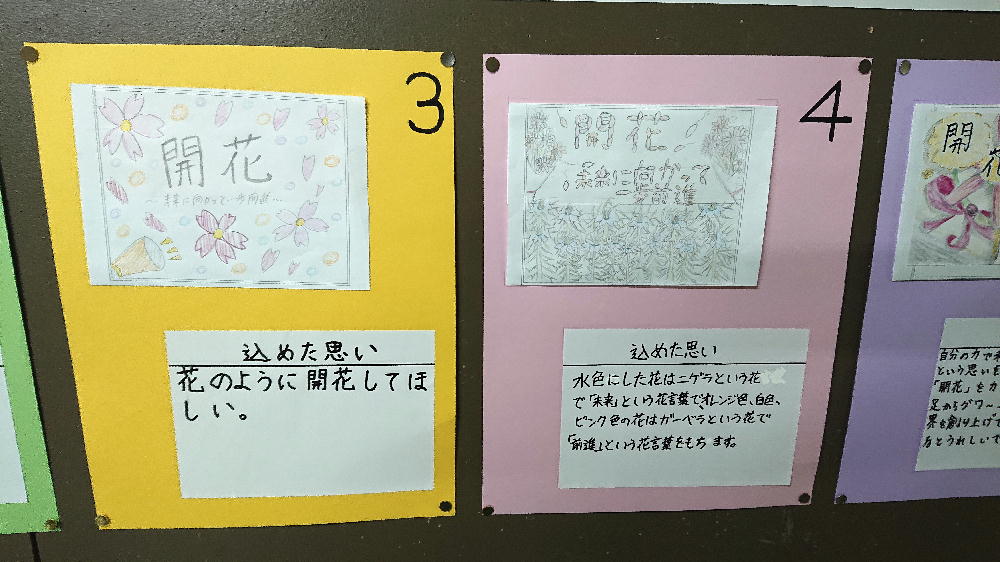 3
開花
~未来に向かって一歩前進…
込めた思い
花のように開花してほ
しい。
4
開花
未来に向かって
一歩前進
込めた思い
水色にした花はニゲラという花
で「未来」という花言葉で、オレンジ色、白色、
ピンク色の花はガーベラという花で
「前進」という花言葉をもちます。
開
花
自分の力で
という思いを
「開花」を
足からグワ〜
界を創り上げて